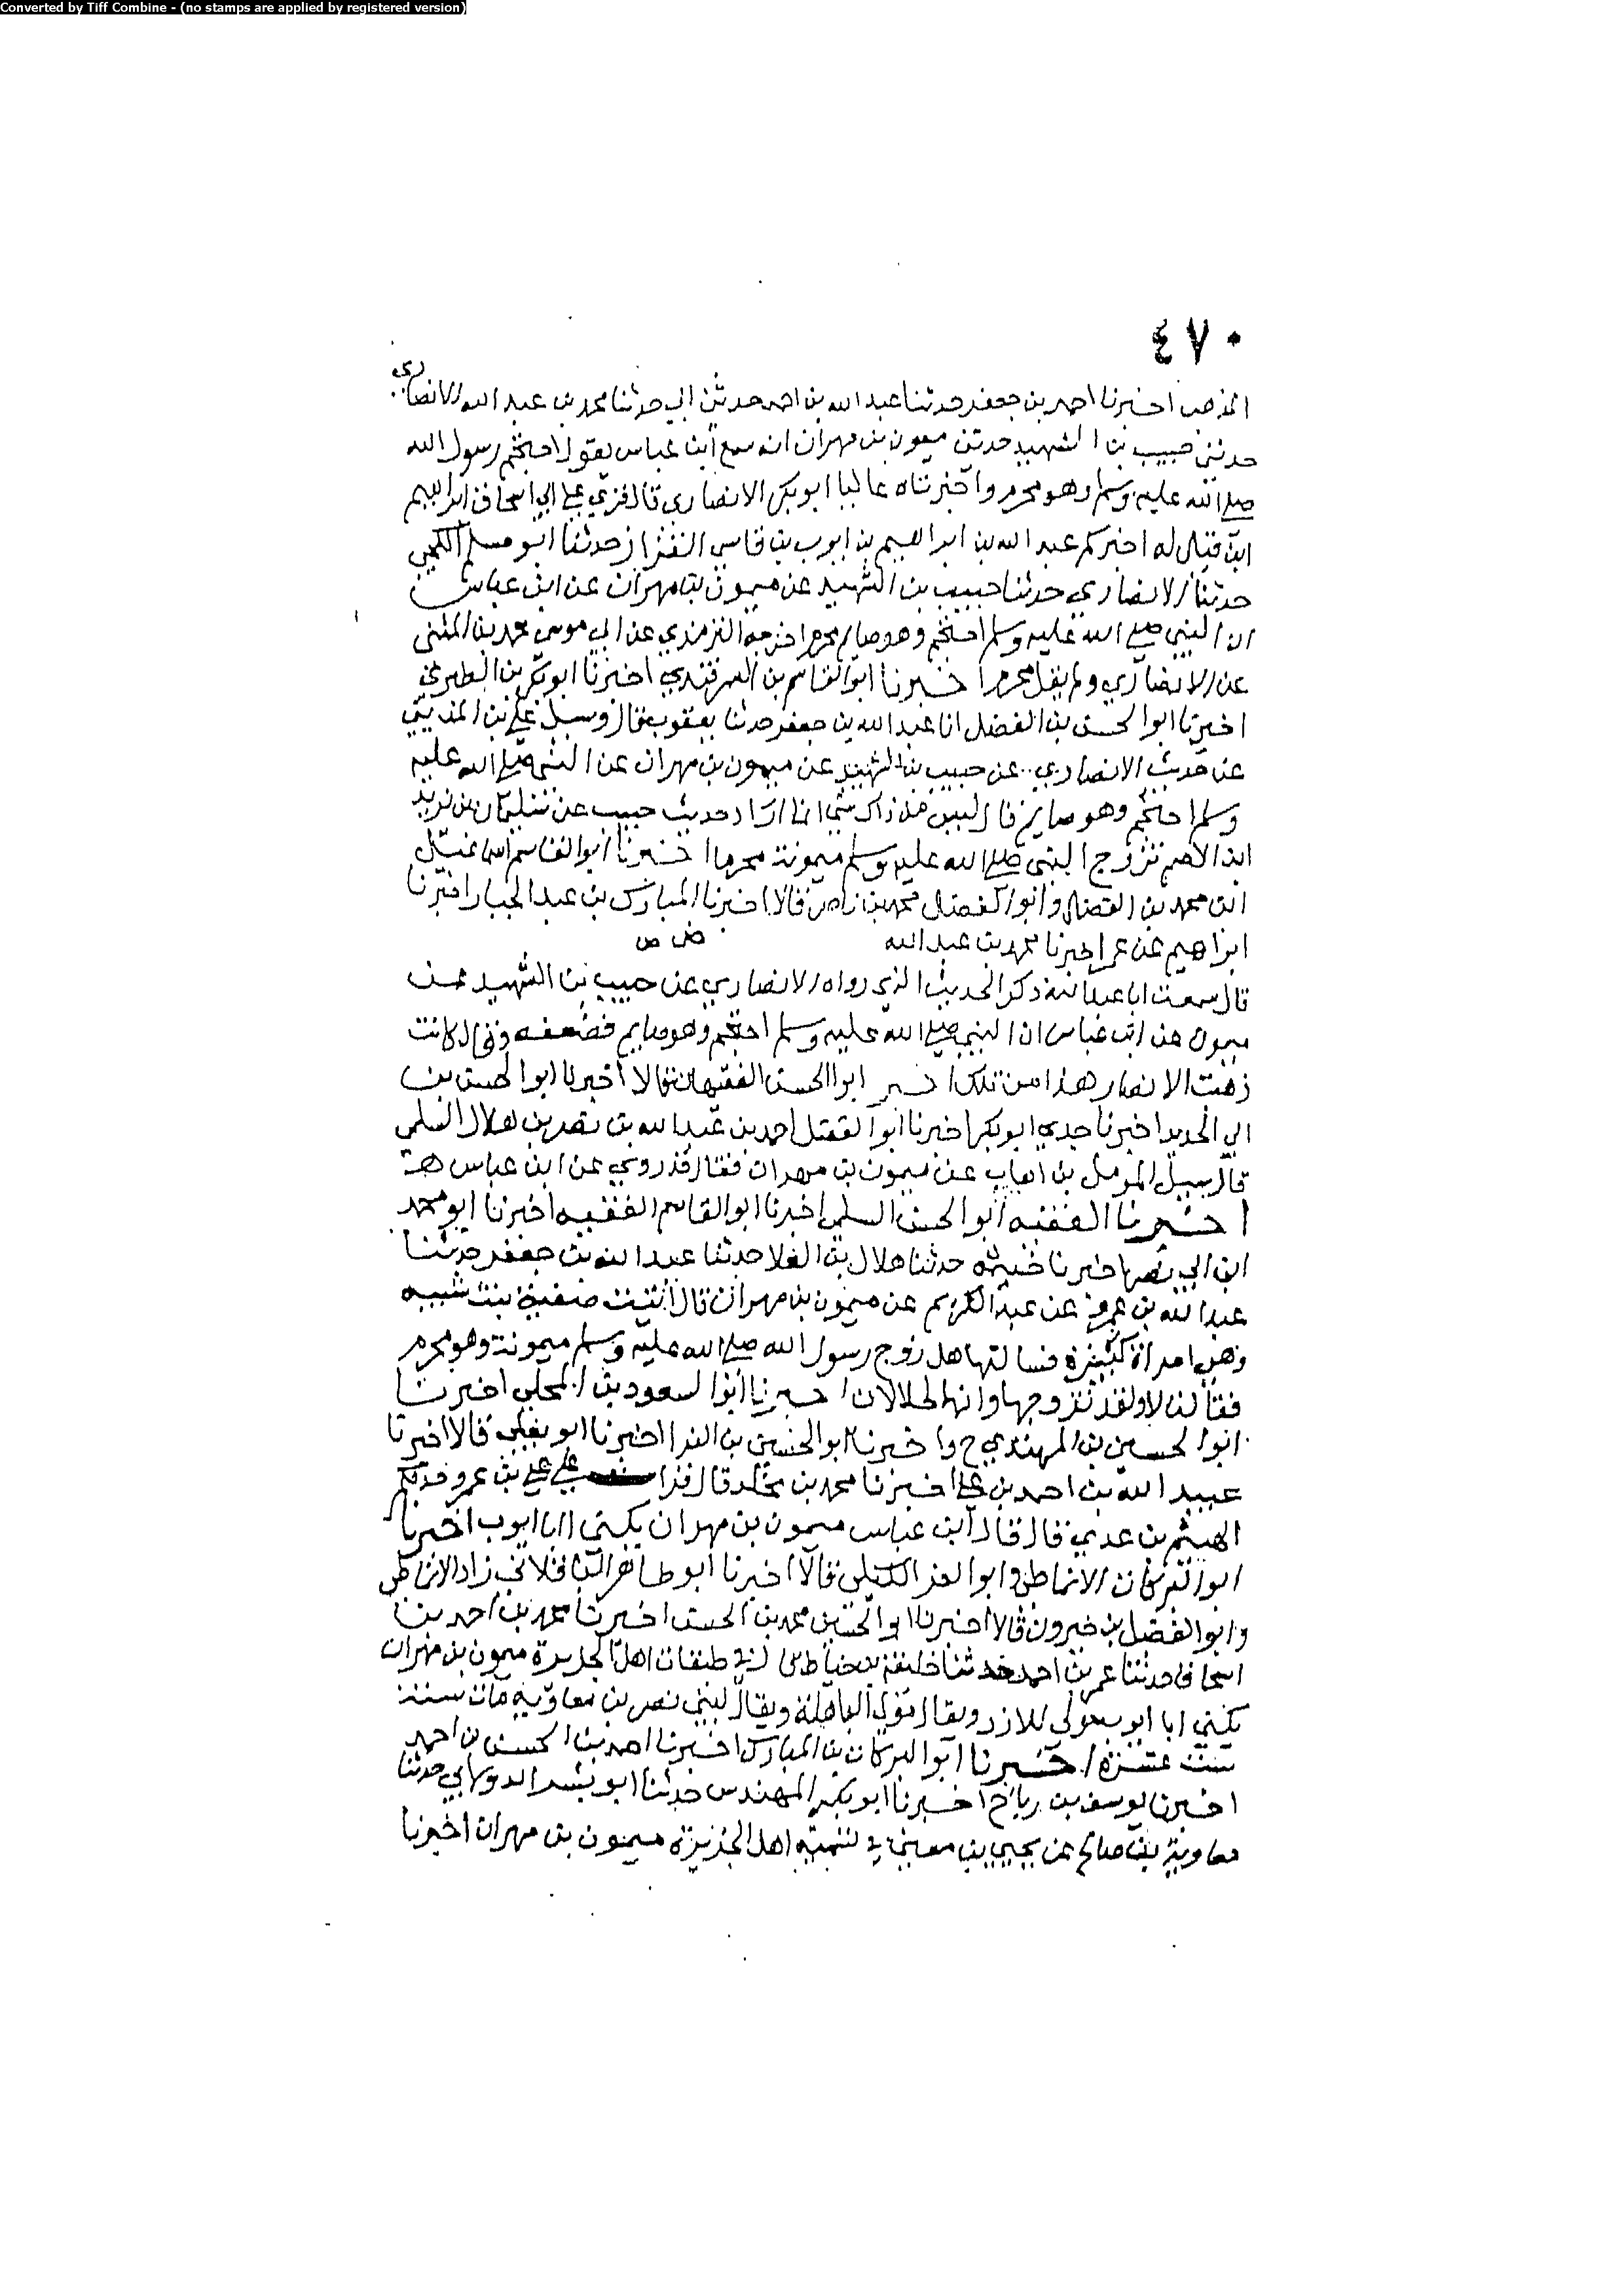 Converted by Tiff Combine - (no stamps are applied by registered version)
٤٧٠
المذهب اخبرنا احمد بن جعفر حدثنا عبد الله بن احمد حدثني ابي حدثنا محمد بن عبد الله الانصاري
حدثني حبيب بن الشهيد حدثني ميمون بن مهران انه سمع ابن عباس يقول احتجم رسول الله
صلى الله عليه وسلم وهو محرم واخبرناه عاليا ابو بكر الانصاري قال قري على ابي اسحاق ابراهيم
ابن قيل له اخبركم عبد الله بن ابراهيم بن ايوب بن ماسي البزاز حدثنا ابو مسلم الكجي
حدثنا الانصاري حدثنا حبيب بن الشهيد عن ميمون بن مهران عن ابن عباس
ان النبي صلى الله عليه وسلم احتجم وهو صايم محرم اخرجه الترمذي عن ابي موسى محمد بن المثنى
عن الانصاري ولم يقل محرم اخبرنا ابو القاسم بن السمرقندي اخبرنا ابو بكر بن الطبري
اخبرنا ابو الحسين بن الفضل انا عبد الله بن جعفر حدثنا يعقوب قال وسيل علي بن المديني
عن حديث الانصاري عن حبيب بن الشهيد عن ميمون بن مهران عن النبي صلى الله عليه
وسلم احتجم وهو صايم قال ليس من ذاك شي انما اراد حديث حبيب عن ميمون عن يزيد
ابن الاصم تزوج النبي صلى الله عليه وسلم ميمونة محرما اخبرنا ابو القاسم اسماعيل
ابن محمد بن الفضل وابو الفضل محمد بن ناصر قالا اخبرنا المبارك بن عبد الجبار اخبرنا
ابراهيم عن عمر اخبرنا محمد بن عبد الله ض ص
قال سمعت ابا عبد الله ذكر الحديث الذي رواه الانصاري عن حبيب بن الشهيد عن
ميمون عن ابن عباس ان النبي صلى الله عليه وسلم احتجم وهو صايم فضعفه وقال كانت
ذهبت الانصار هذا من تلك اخبر ابو الحسن الفقيهان قالا اخبرنا ابو الحسن بن
ابي الحديد اخبرنا جدي ابو بكر اخبرنا ابو الفضل احمد بن عبد الله بن نصر بن هلال السلمي
قال سيل المومل بن اهاب عن ميمون بن مهران فقال قد روي عن ابن عباس
اخبرنا الفقيه ابو الحسن السلمي اخبرنا ابو القاسم الفقيه اخبرنا ابو محمد
ابن ابي نصر اخبرنا خيثمة حدثنا هلال بن العلا حدثنا عبد الله بن جعفر حدثنا
عبد الله بن عمرو عن عبد الكريم عن ميمون بن مهران قال اتيت صفية بنت شيبه
وهي امراة كبيرة فسالتها هل تزوج رسول الله صلى الله عليه وسلم ميمونة وهو محرم
فقالت لا ولقد تزوجها وانهما لحلالان اخبرنا ابو السعود بن المجلي اخبرنا
ابو الحسين بن المهتدي ح واخبرنا ابو الحسين بن الفرا اخبرنا ابو يعلى قالا اخبرنا
عبيد الله بن احمد بن علي اخبرنا محمد بن مخلد قال قرات على علي بن عمرو حدثكم
الهيثم بن عدي قال قال ابن عباس ميمون بن مهران يكنى ابا ايوب اخبرنا
ابو البركات الانماطي وابو العز الكيلي قالا اخبرنا ابو طاهر الباقلاني زاد الانماطي
وابو الفضل بن خيرون قالا اخبرنا ابو الحسين محمد بن الحسن اخبرنا محمد بن احمد بن
اسحاق حدثنا عمر بن احمد حدثنا خليفة بن خياط قال في طبقات اهل الجزيرة ميمون بن مهران
يكنى ابا ايوب مولى للازد ويقال مولى الباهلة ويقال لبني نصر بن معاوية مات سنة
ست عشرة اخبرنا ابو البركات بن المبارك اخبرنا احمد بن الحسن بن احمد
اخبرنا يوسف بن رباح اخبرنا ابو بكر المهندس حدثنا ابو بشر الدولابي حدثنا
معاوية بن صالح عن يحيى بن معين في تسمية اهل الجزيرة ميمون بن مهران اخبرنا